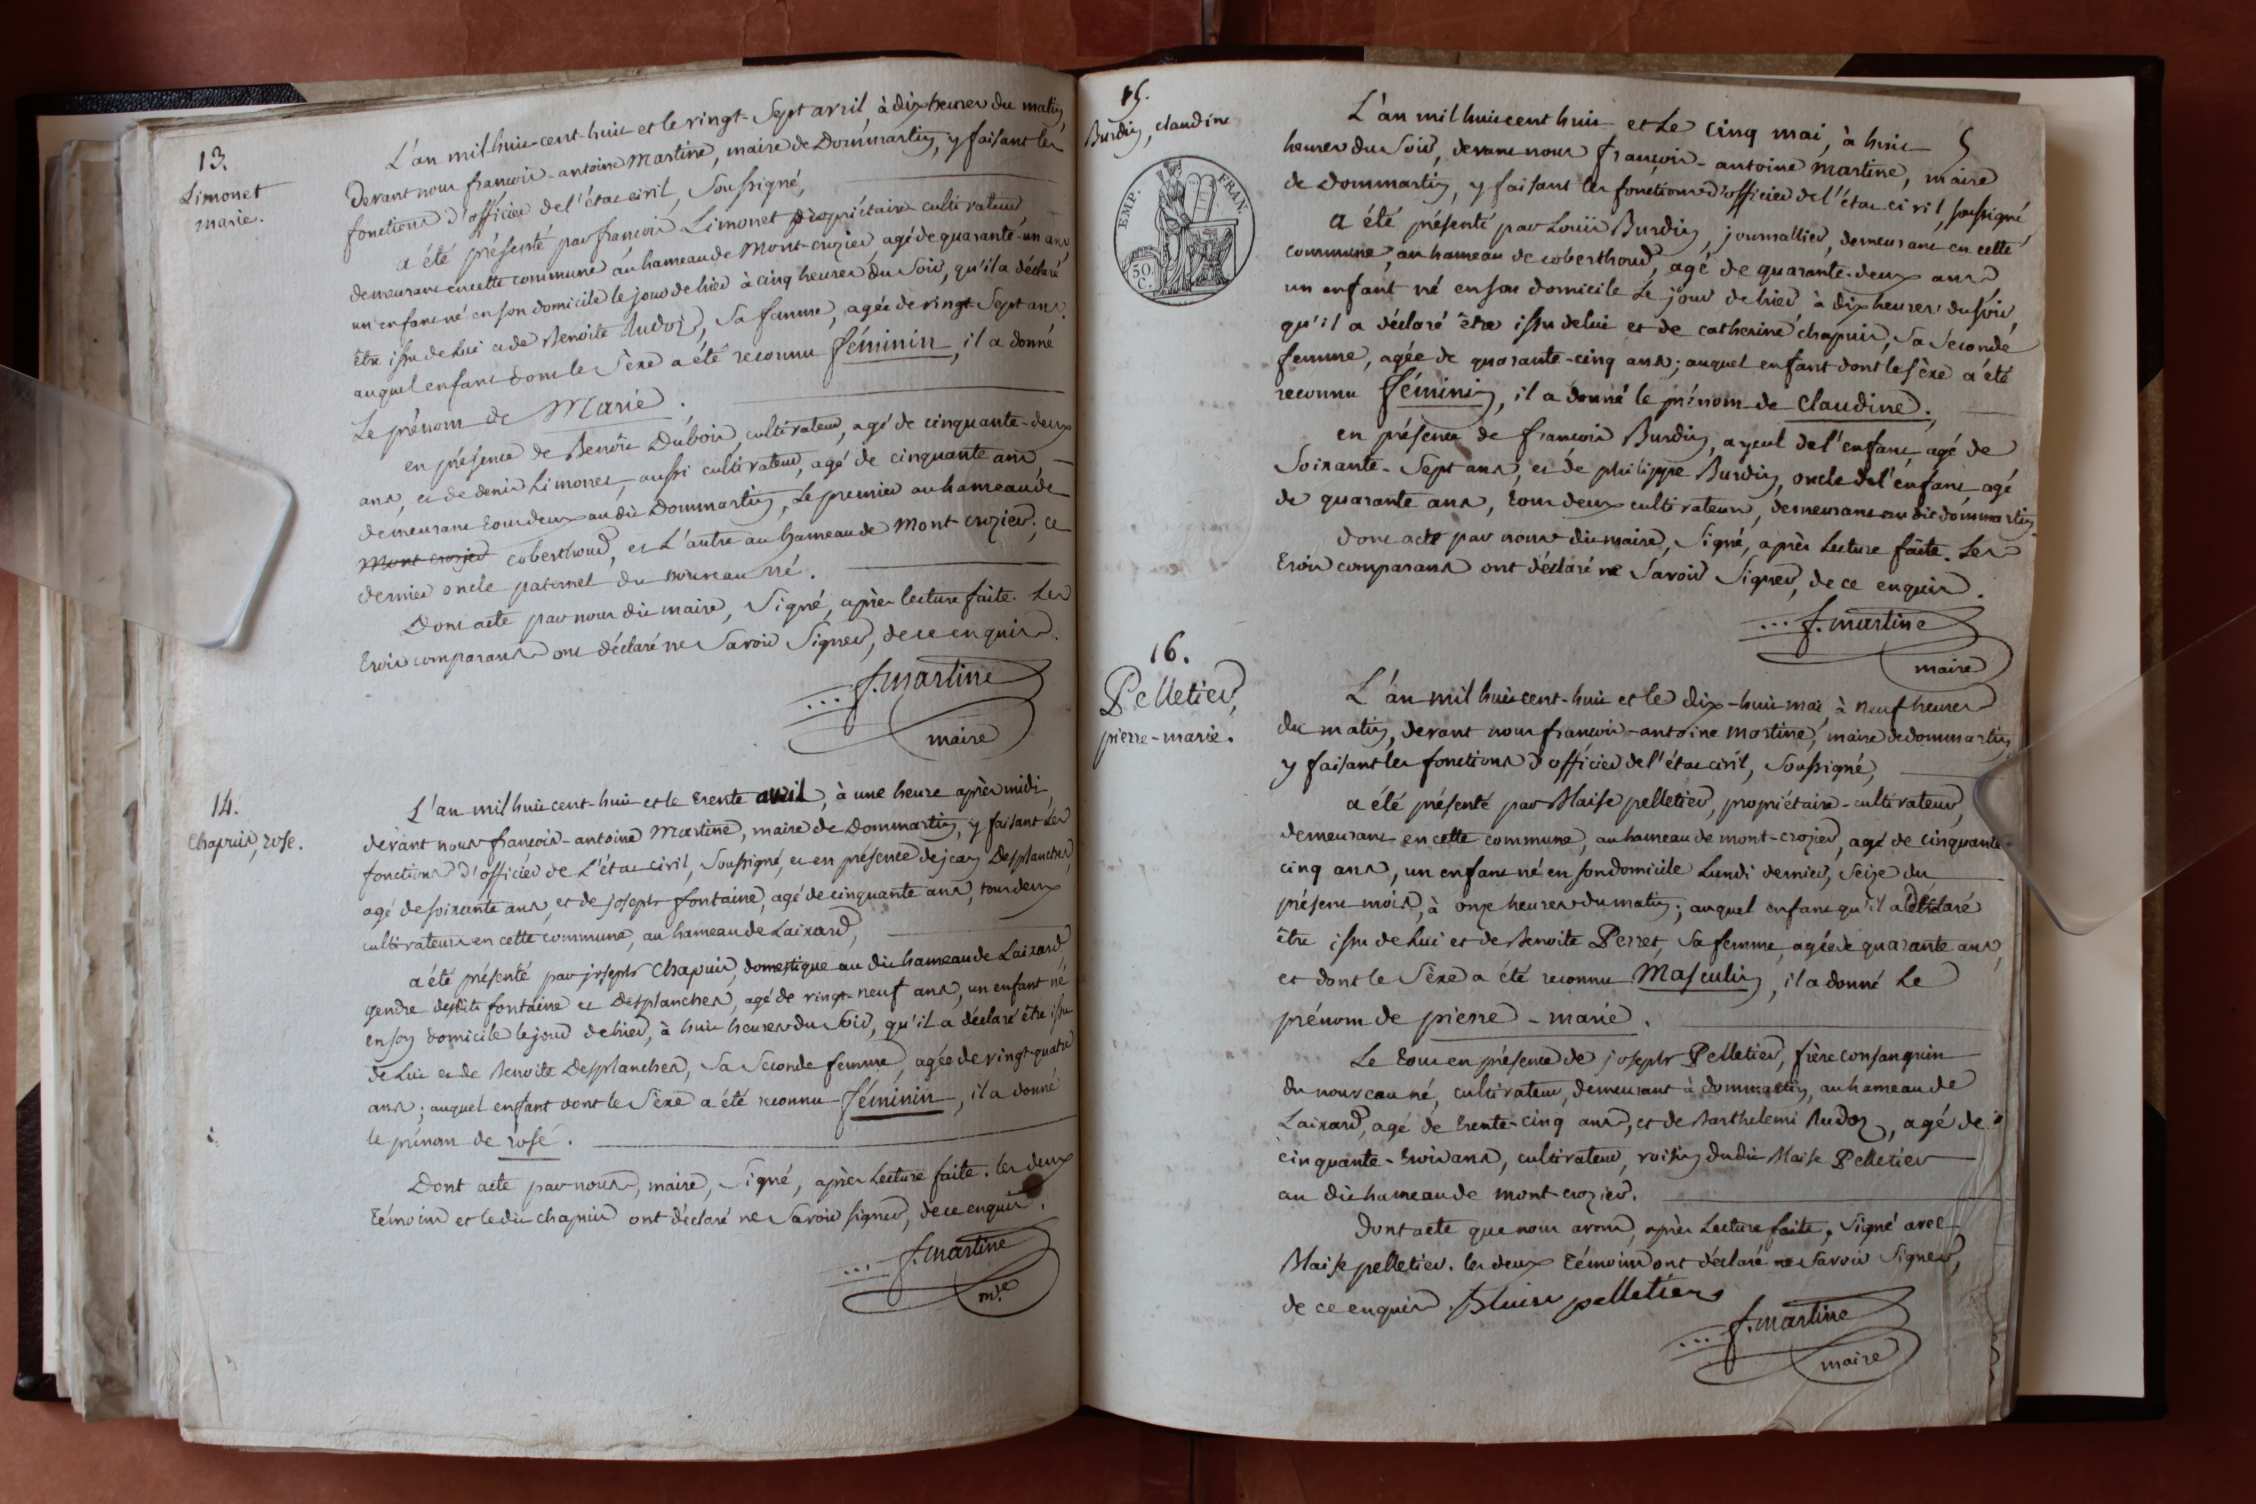 13.
Limonet
marie.
L'an mil huit-cent-huit et le vingt-sept avril, à dix heures du matin,
devant nous françois-antoine Martine, maire de Dommartin, y faisant les
fonctions d'officier de l'état civil, soussigné,
a été présenté par françois Limonet propriétaire cultivateur,
demeurant en cette commune au hameau de Mont-crozier agé de quarante-un ans,
un enfant né en son domicile le jour de hier à cinq heures du soir, qu'il a déclaré
être issu de Lui et de Benoite Audoz, sa femme, agée de vingt-sept ans.
auquel enfant dont le sèxe a été reconnu féminin, il a donné
Le prénom de Marie.
en présence de Benôit Dubois, cultivateur, agé de cinquante-deux
ans, et de denis Limonet, aussi cultivateur, agé de cinquante ans,
demeurant tous deux au dit Dommartin, Le premier au hameau de
Mont-crozier coberthoud, et L'autre au hameau de Mont-crozier, ce
dernier oncle paternel du nouveau né.
Dont acte par nous dit maire, signé, après lecture faite. Les
trois comparans ont déclaré ne savoir signer, de ce enquis.
f. martine
maire
14.
Chapuis, rose.
L'an mil huit cent-huit et le trente avril, à une heure après midi,
devant nous françois-antoine Martine, maire de Dommartin, y faisant Les
fonctions d'officier de L'état civil, soussigné, et en présence de jean Desplanches,
agé de soixante ans, et de joseph fontaine, agé de cinquante ans, tous deux
cultivateurs en cette commune, au hameau de Laixard,
a été présenté par joseph Chapuis, domestique au dit hameau de Laixard,
gendre desdits fontaine et Desplanches, agé de vingt-neuf ans, un enfant né
en son domicile le jour de hier, à huit heures du soir, qu'il a déclaré être issu
de Lui et de Benoite Desplanches, sa seconde femme, agée de vingt-quatre
ans; auquel enfant dont le sèxe a été reconnu féminin, il a donné
le prénom de rose.
Dont acte par nous, maire, signé, après Lecture faite. les deux
témoins et le dit chapuis ont déclaré ne savoir signer, de ce enquis.
f. martine
m.re
15.
Burdin, claudine
EMP. FRAN.
50.
C.
5
L'an mil huit cent huit et Le cinq mai, à huit
heures du soir, devant nous françois-antoine Martine, maire
de Dommartin, y faisant les fonctions d'officier de l'état civil, soussigné
a été présenté par Louis Burdin, journallier, demeurant en cette
commune, au hameau de coberthoud, agé de quarante-deux ans
un enfant né en son domicile Le jour de hier à dix heures du soir,
qu'il a déclaré être issu de lui et de catherine chapuis, sa séconde
femme, agée de quarante-cinq ans; auquel enfant dont le sèxe a été
reconnu féminin, il a donné le prénom de claudine.
en présence de françois Burdin, ayeul de l'enfant, agé de
soixante-sept ans, et de philippe Burdin, oncle de l'enfant, agé
de quarante ans, tous deux cultivateurs, demeurant au dit dommartin.
dont acte par nous dit maire, signé, après Lecture faite. Les
trois comparans ont déclaré ne savoir signer, de ce enquis.
f. martine
maire
16.
Pelletier,
pierre-marie.
L'an mil huit cent-huit et le dix-huit mai, à neuf heures
du matin, devant nous françois-antoine Martine, maire de dommartin,
y faisant les fonctions d'officier de l'état civil, soussigné,
a été présenté par Blaise pelletier, propriétaire-cultivateur,
demeurant en cette commune, au hameau de mont-crozier, agé de cinquante-
cinq ans, un enfant né en son domicile Lundi dernier, seize du
présent mois, à onze heures du matin; auquel enfant qu'il a déclaré
être issu de Lui et de Benoite Perret, sa femme, agée de quarante ans,
et dont le sèxe a été reconnu Masculin, il a donné Le
prénom de pierre-marie.
Le tout en présence de joseph Pelletier, frère consanguin
du nouveau né, cultivateur, demeurant à dommartin, au hameau de
Laixard, agé de trente-cinq ans, et de Barthelemi Audoz, agé de
cinquante-trois ans, cultivateur, voisin du dit Blaise Pelletier
au dit hameau de mont-crozier.
Dont acte que nous avons, après Lecture faite, signé avec
Blaise pelletier. les deux témoins ont déclaré ne savoir signer,
de ce enquis. Blaise pelletier
f. martine
maire